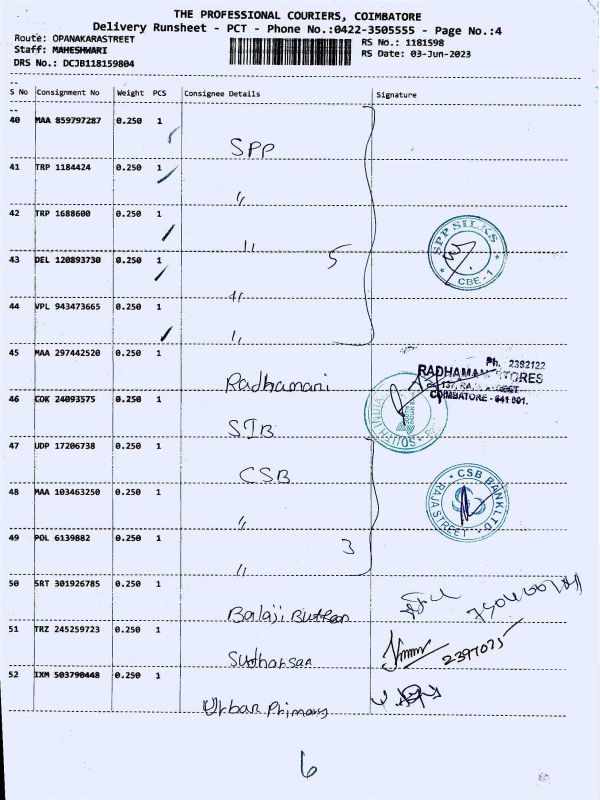 THE PROFESSIONAL COURIERS, COIMBATORE
Delivery Runsheet - PCT - Phone No.:0422-3505555 - Page No.:4
Route: OPANAKARASTREET
RS No.: 1181598
Staff: MAHESHWARI
RS Date: 03-Jun-2023
DRS No.: DCJB118159804
S No Consignment No Weight PCS Consignee Details Signature
40 MAA 859797287 0.250 1
SPP
41 TRP 1184424 0.250 1
"
42 TRP 1688600 0.250 1
"
5
43 DEL 120893730 0.250 1
"
44 VPL 943473665 0.250 1
"
SPP SILKS
CBE - 1
45 MAA 297442520 0.250 1
Radhamani
Ph. 2392122
RADHAMANI STORES
COIMBATORE - 641 001.
46 COK 24093575 0.250 1
SIB
47 UDP 17206738 0.250 1
CSB
CSB BANK LTD
RAJA STREET
48 MAA 103463250 0.250 1
"
49 POL 6139882 0.250 1
3
"
50 SRT 301926785 0.250 1
Balaji Button
51 TRZ 245259723 0.250 1
Sudharsan
2397075
52 IXM 503790448 0.250 1
Urban Primary
6